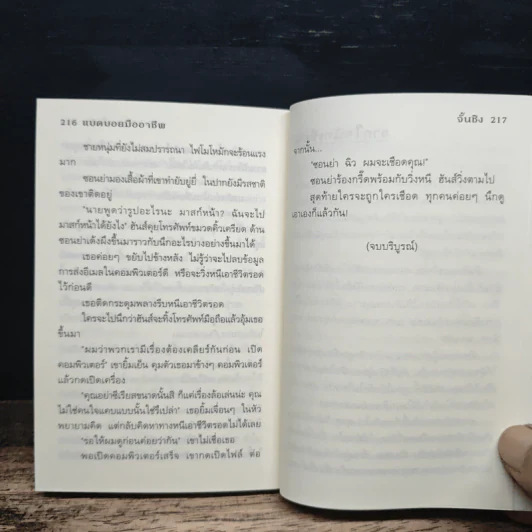 216 แบดบอยมืออาชีพ
ชายหนุ่มที่ยังไม่สมปรารถนา ไฟโมโหมักจะร้อนแรง
มาก
ซอนย่ามองเสื้อผ้าที่เขาทำยับยู่ยี่ ในปากยังมีรสชาติ
ของเขาติดอยู่
"นายพูดว่ารูปอะไรนะ มาสก์หน้า? ฉันจะไป
มาสก์หน้าได้ยังไง" ฮันส์คุยโทรศัพท์ขมวดคิ้วเครียด ด้าน
ซอนย่าเด้งผึงขึ้นมาราวกับนึกอะไรบางอย่างขึ้นมาได้
เธอค่อยๆ ขยับไปข้างหลัง ไม่รู้ว่าจะไปลบข้อมูล
การส่งอีเมลในคอมพิวเตอร์ดี หรือจะวิ่งหนีเอาชีวิตรอด
ไว้ก่อนดี
เธอติดกระดุมพลางรีบหนีเอาชีวิตรอด
ใครจะไปนึกว่าฮันส์จะทิ้งโทรศัพท์มือถือแล้วอุ้มเธอ
ขึ้นมา
"ผมว่าพวกเรามีเรื่องต้องเคลียร์กันก่อน เปิด
คอมพิวเตอร์" เขายิ้มเย็น คุมตัวเธอมาข้างๆ คอมพิวเตอร์
แล้วกดเปิดเครื่อง
"คุณอย่าซีเรียสขนาดนั้นสิ ก็แค่เรื่องล้อเล่นน่ะ คุณ
ไม่ใช่คนใจแคบแบบนั้นใช่รึเปล่า" เธอยิ้มเจื่อนๆ ในหัว
พยายามคิด แต่กลับคิดหาทางหนีเอาชีวิตรอดไม่ได้เลย
"รอให้ผมดูก่อนค่อยว่ากัน" เขาไม่เชื่อเธอ
พอเปิดคอมพิวเตอร์เสร็จ เขากดเปิดไฟล์ ต่อ
จิ้นชิง 217
จากนั้น...
"ซอนย่า ฉิว ผมจะเชือดคุณ!"
ซอนย่าร้องกรี๊ดพร้อมกับวิ่งหนี ฮันส์วิ่งตามไป
สุดท้ายใครจะถูกใครเชือด ทุกคนค่อยๆ นึกดู
เอาเองก็แล้วกัน!
(จบบริบูรณ์)